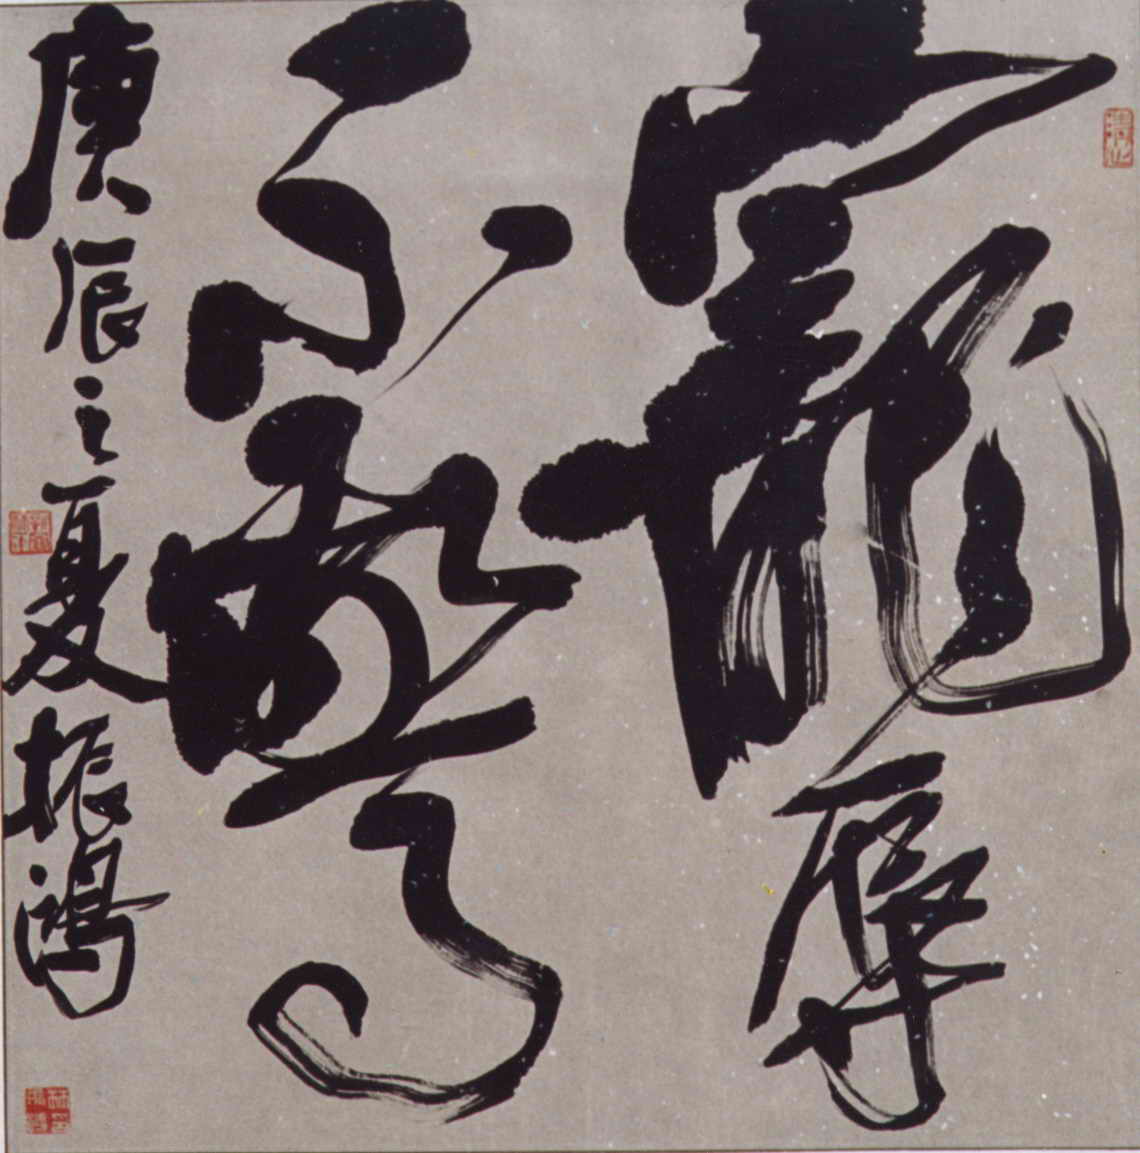 寵辱
不驚
庚辰之夏振鴻